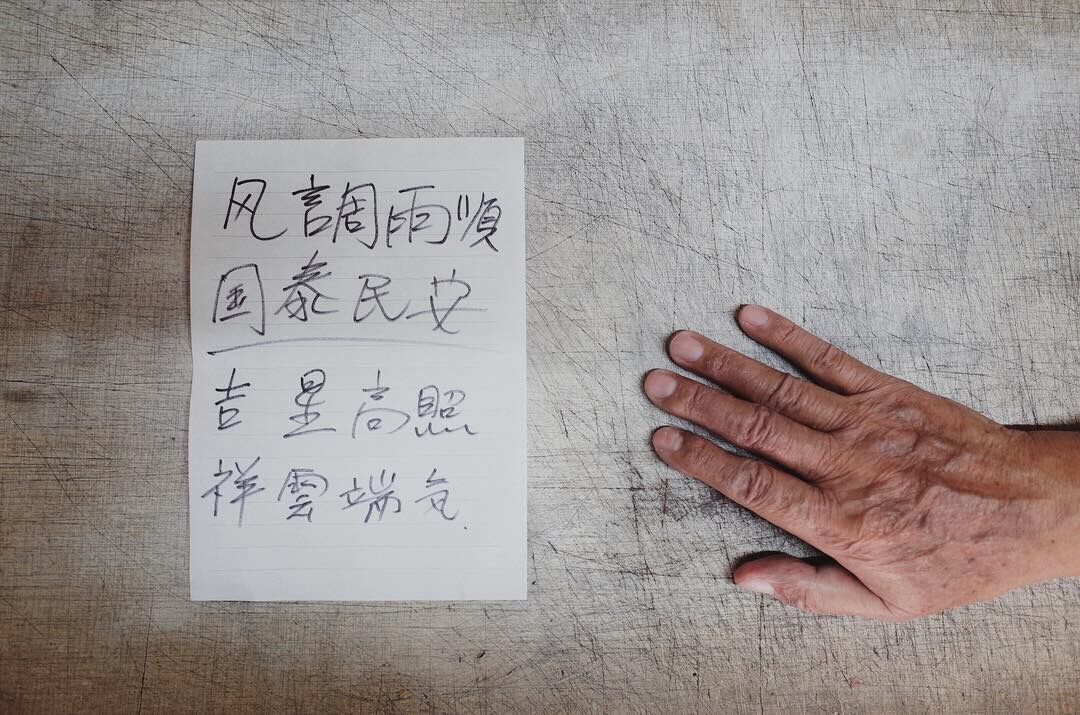 风調雨順
国泰民安
吉星高照
祥雲端気